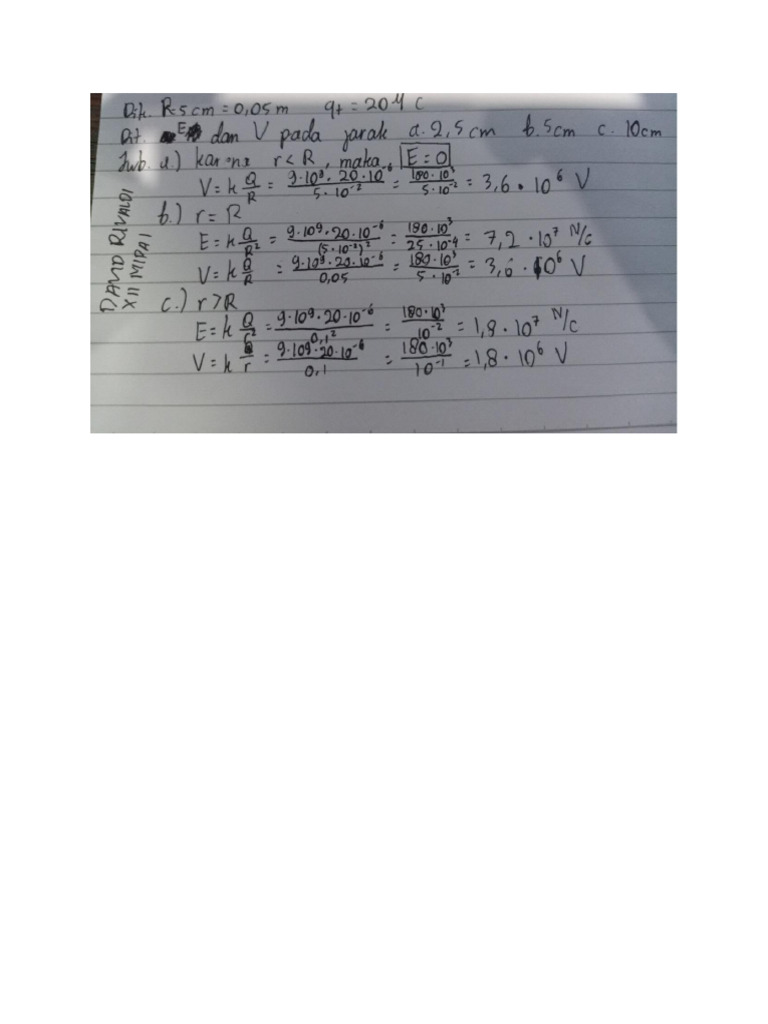 Dik. R=5cm = 0,05 m q+ = 20 μ C
Dit. E dan V pada jarak a. 2,5 cm b. 5cm c. 10cm
Jwb. a.) karena r < R, maka E = 0
V = k Q/R = 9·10⁹·20·10⁻⁶/5·10⁻² = 180·10³/5·10⁻² = 3,6·10⁶ V
b.) r = R
E = k Q/R² = 9·10⁹·20·10⁻⁶/(5·10⁻²)² = 180·10³/25·10⁻⁴ = 7,2·10⁷ N/C
V = k Q/R = 9·10⁹·20·10⁻⁶/0,05 = 180·10³/5·10⁻² = 3,6·10⁶ V
c.) r > R
E = k Q/r² = 9·10⁹·20·10⁻⁶/0,1² = 180·10³/10⁻² = 1,8·10⁷ N/C
V = k Q/r = 9·10⁹·20·10⁻⁶/0,1 = 180·10³/10⁻¹ = 1,8·10⁶ V
DAVID RIVALDI
XII MIPA 1